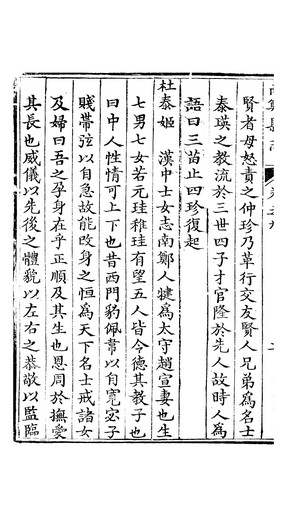 賢者母怒責之仲珍乃革行交友賢人兄弟為名士
泰瑛之教流於三世四子才官隆於先人故時人為
語曰三苗止四珍復起
杜泰姬　漢中士女志南鄭人犍為太守趙宣妻也生
七男七女若元珪稚珪有望五人皆令德其教子也
曰中人性情可上下也昔西門豹佩常以自寬宓子
賤帶弦以自急故能改身之恒為天下名士戒諸女
及婦曰吾之孕身在乎正順及其生也恩周於撫愛
其長也威儀以先後之體貌以左右之恭敬以監臨